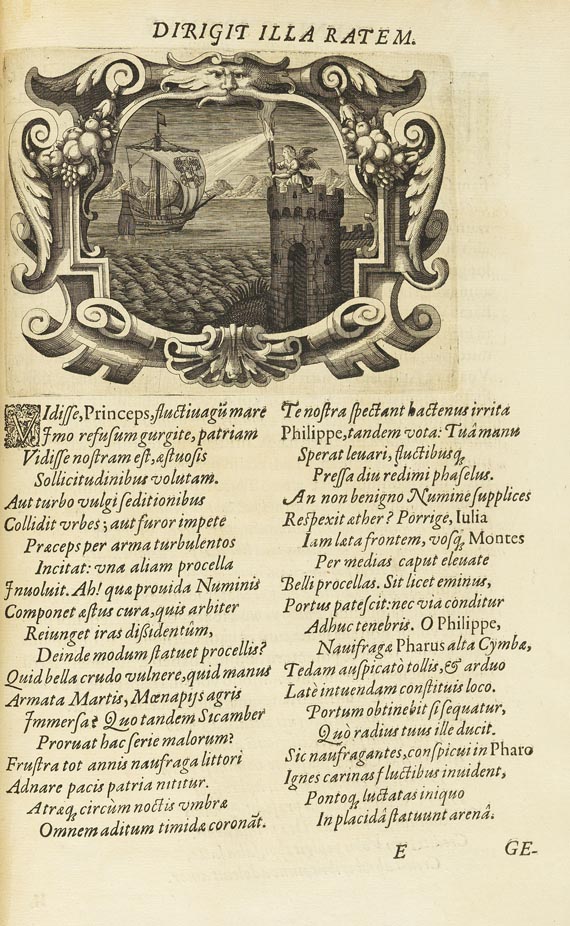 DIRIGIT ILLA RATEM.
VIdisse, Princeps, fluctiuagũ mare
Imo refusum gurgite, patriam
Vidisse nostram est, æstuosis
Sollicitudinibus volutam.
Aut turbo vulgi seditionibus
Collidit vrbes; aut furor impete
Præceps per arma turbulentos
Incitat: vnæ aliam procella
Inuoluit. Ah! quæ prouida Numinis
Componet æstus cura, quis arbiter
Reiunget iras dißidentûm,
Deinde modum statuet procellis?
Quid bella crudo vulnere, quid manus
Armata Martis, Mœnapijs agris
Immersa? Quo tandem Sicamber
Proruat hac serie malorum?
Frustra tot annis naufraga littori
Adnare pacis patria nititur.
Atræq; circùm noctis vmbræ
Omnem aditum timidæ coronāt.
Te nostra spectant hactenus irrita
Philippe, tandem vota: Tuâ manu
Sperat leuari, fluctibusq;
Pressa diu redimi phaselus.
An non benigno Numine supplices
Respexit æther? Porrige, Iulia
Iam læta frontem, vosq; Montes
Per medias caput eleuate
Belli procellas. Sit licet eminus,
Portus patescit: nec via conditur
Adhuc tenebris. O Philippe,
Naufragæ Pharus alta Cymbæ,
Tedam auspicatò tollis, & arduo
Latè intuendam constituis loco.
Portum obtinebit si sequatur,
Quò radius tuus ille ducit.
Sic naufragantes, conspicui in Pharo
Ignes carinas fluctibus inuident,
Pontoq; luctatas iniquo
In placidâ statuunt arenâ.
E
GE-